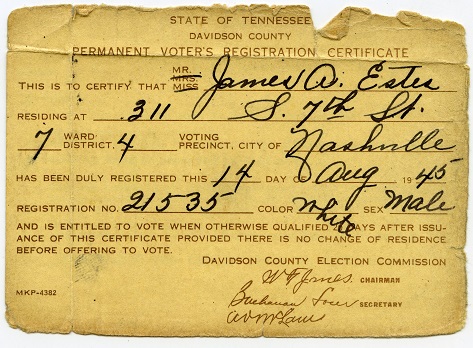 STATE OF TENNESSEE
DAVIDSON COUNTY
PERMANENT VOTER'S REGISTRATION CERTIFICATE
THIS IS TO CERTIFY THAT MR. MRS. MISS James A. Estes
RESIDING AT 311 S. 7th St.
7 WARD DISTRICT. 4 VOTING PRECINCT, CITY OF Nashville
HAS BEEN DULY REGISTERED THIS 14 DAY OF Aug 1945
REGISTRATION NO. 21535 COLOR White SEX Male
AND IS ENTITLED TO VOTE WHEN OTHERWISE QUALIFIED DAYS AFTER ISSU-
ANCE OF THIS CERTIFICATE PROVIDED THERE IS NO CHANGE OF RESIDENCE
BEFORE OFFERING TO VOTE.
DAVIDSON COUNTY ELECTION COMMISSION
CHAIRMAN
MKP-4382
Buchanan SECRETARY